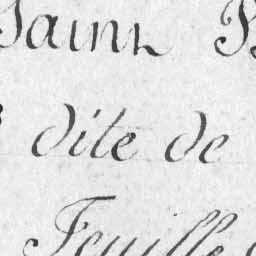 Saint
dite de
Feuille